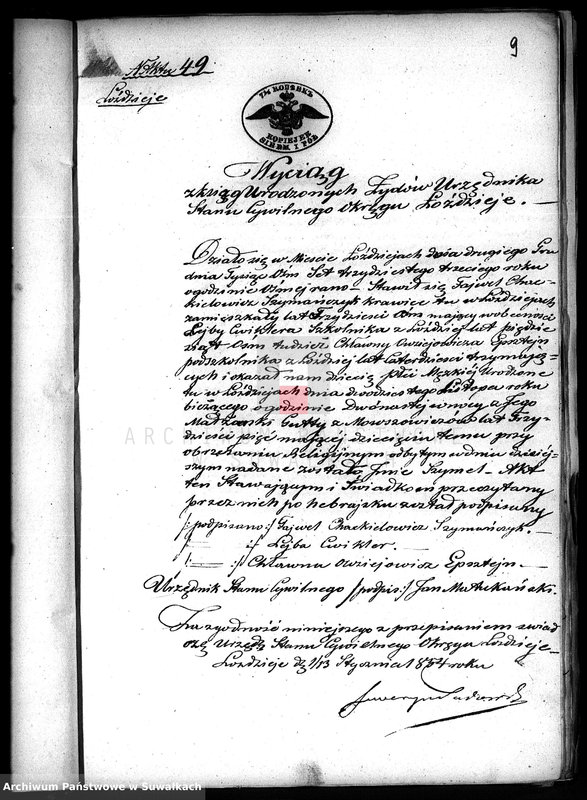 9
N Aktu 49
Łoździeje
7½ KOPSEKЪ
KOPIEJEK
SIEDM I PÓŁ
Wyciąg
z ksiąg Urodzonych Żydów Urzędnika
Stanu Cywilnego Okręgu Łoździeje. —
Działo się w Mieście Łoździejach dnia drugiego Gru
dnia Tysiąc Ośm Set trzydziestego trzeciego roku
o godzinie Ósmej rano — Stawił się Fajwel Chac-
kielowicz Szymańczyk krawiec tu w Łoździejach
zamieszkały lat Trzydzieści Ośm mający w obecności
Lejby Cwiklera Szkolnika z Łóździej lat pięćdzie
siąt Ośm tudzież Chławny Owziejowicza Epsztejn
podszkolnika z Łóździej lat czterdzieści trzy mający
ch i okazał nam dziecię Płci Męzkiej Urodzone
tu w Łoździejach dnia dwódziestego Listopa roku
bieżącego o godzinie Dwónastej w nocy z Jego
Małżonki Gutty z Mowszowiczów lat Trzy
dzieści pięć mającej dziecięciu temu przy
obrzezaniu Religijnym odbytym w dniu dzisiej-
szym nadane zostało Imie Szymel — Akt
ten Stawającym i Świadkom przeczytany
przez nich po hebrajsku został podpisany
/: podpisano :/ Fajwel Chackielowicz Szymańczyk. —
/: — :/ Lejba Cwikler. —
/: — :/ Chławna Owziejowicz Epsztejn. —
Urzędnik Stanu Cywilnego /: podpis :/ Jan
Za zgodność niniejszego z przepisaniem zwiad
czę Urzędk Stanu Cywilnego Okręgu Łoździeje —
Łoździeje d 1/13 Stycznia 1834 roku
ARCH
Archiwum Państwowe w Suwałkach